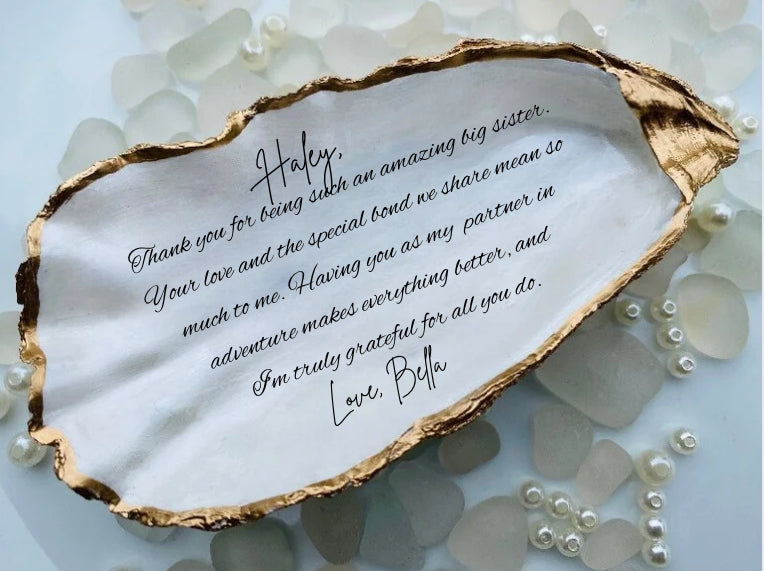 Haley,
Thank you for being such an amazing big sister.
Your love and the special bond we share mean so
much to me. Having you as my partner in
adventure makes everything better, and
I'm truly grateful for all you do.
Love, Bella